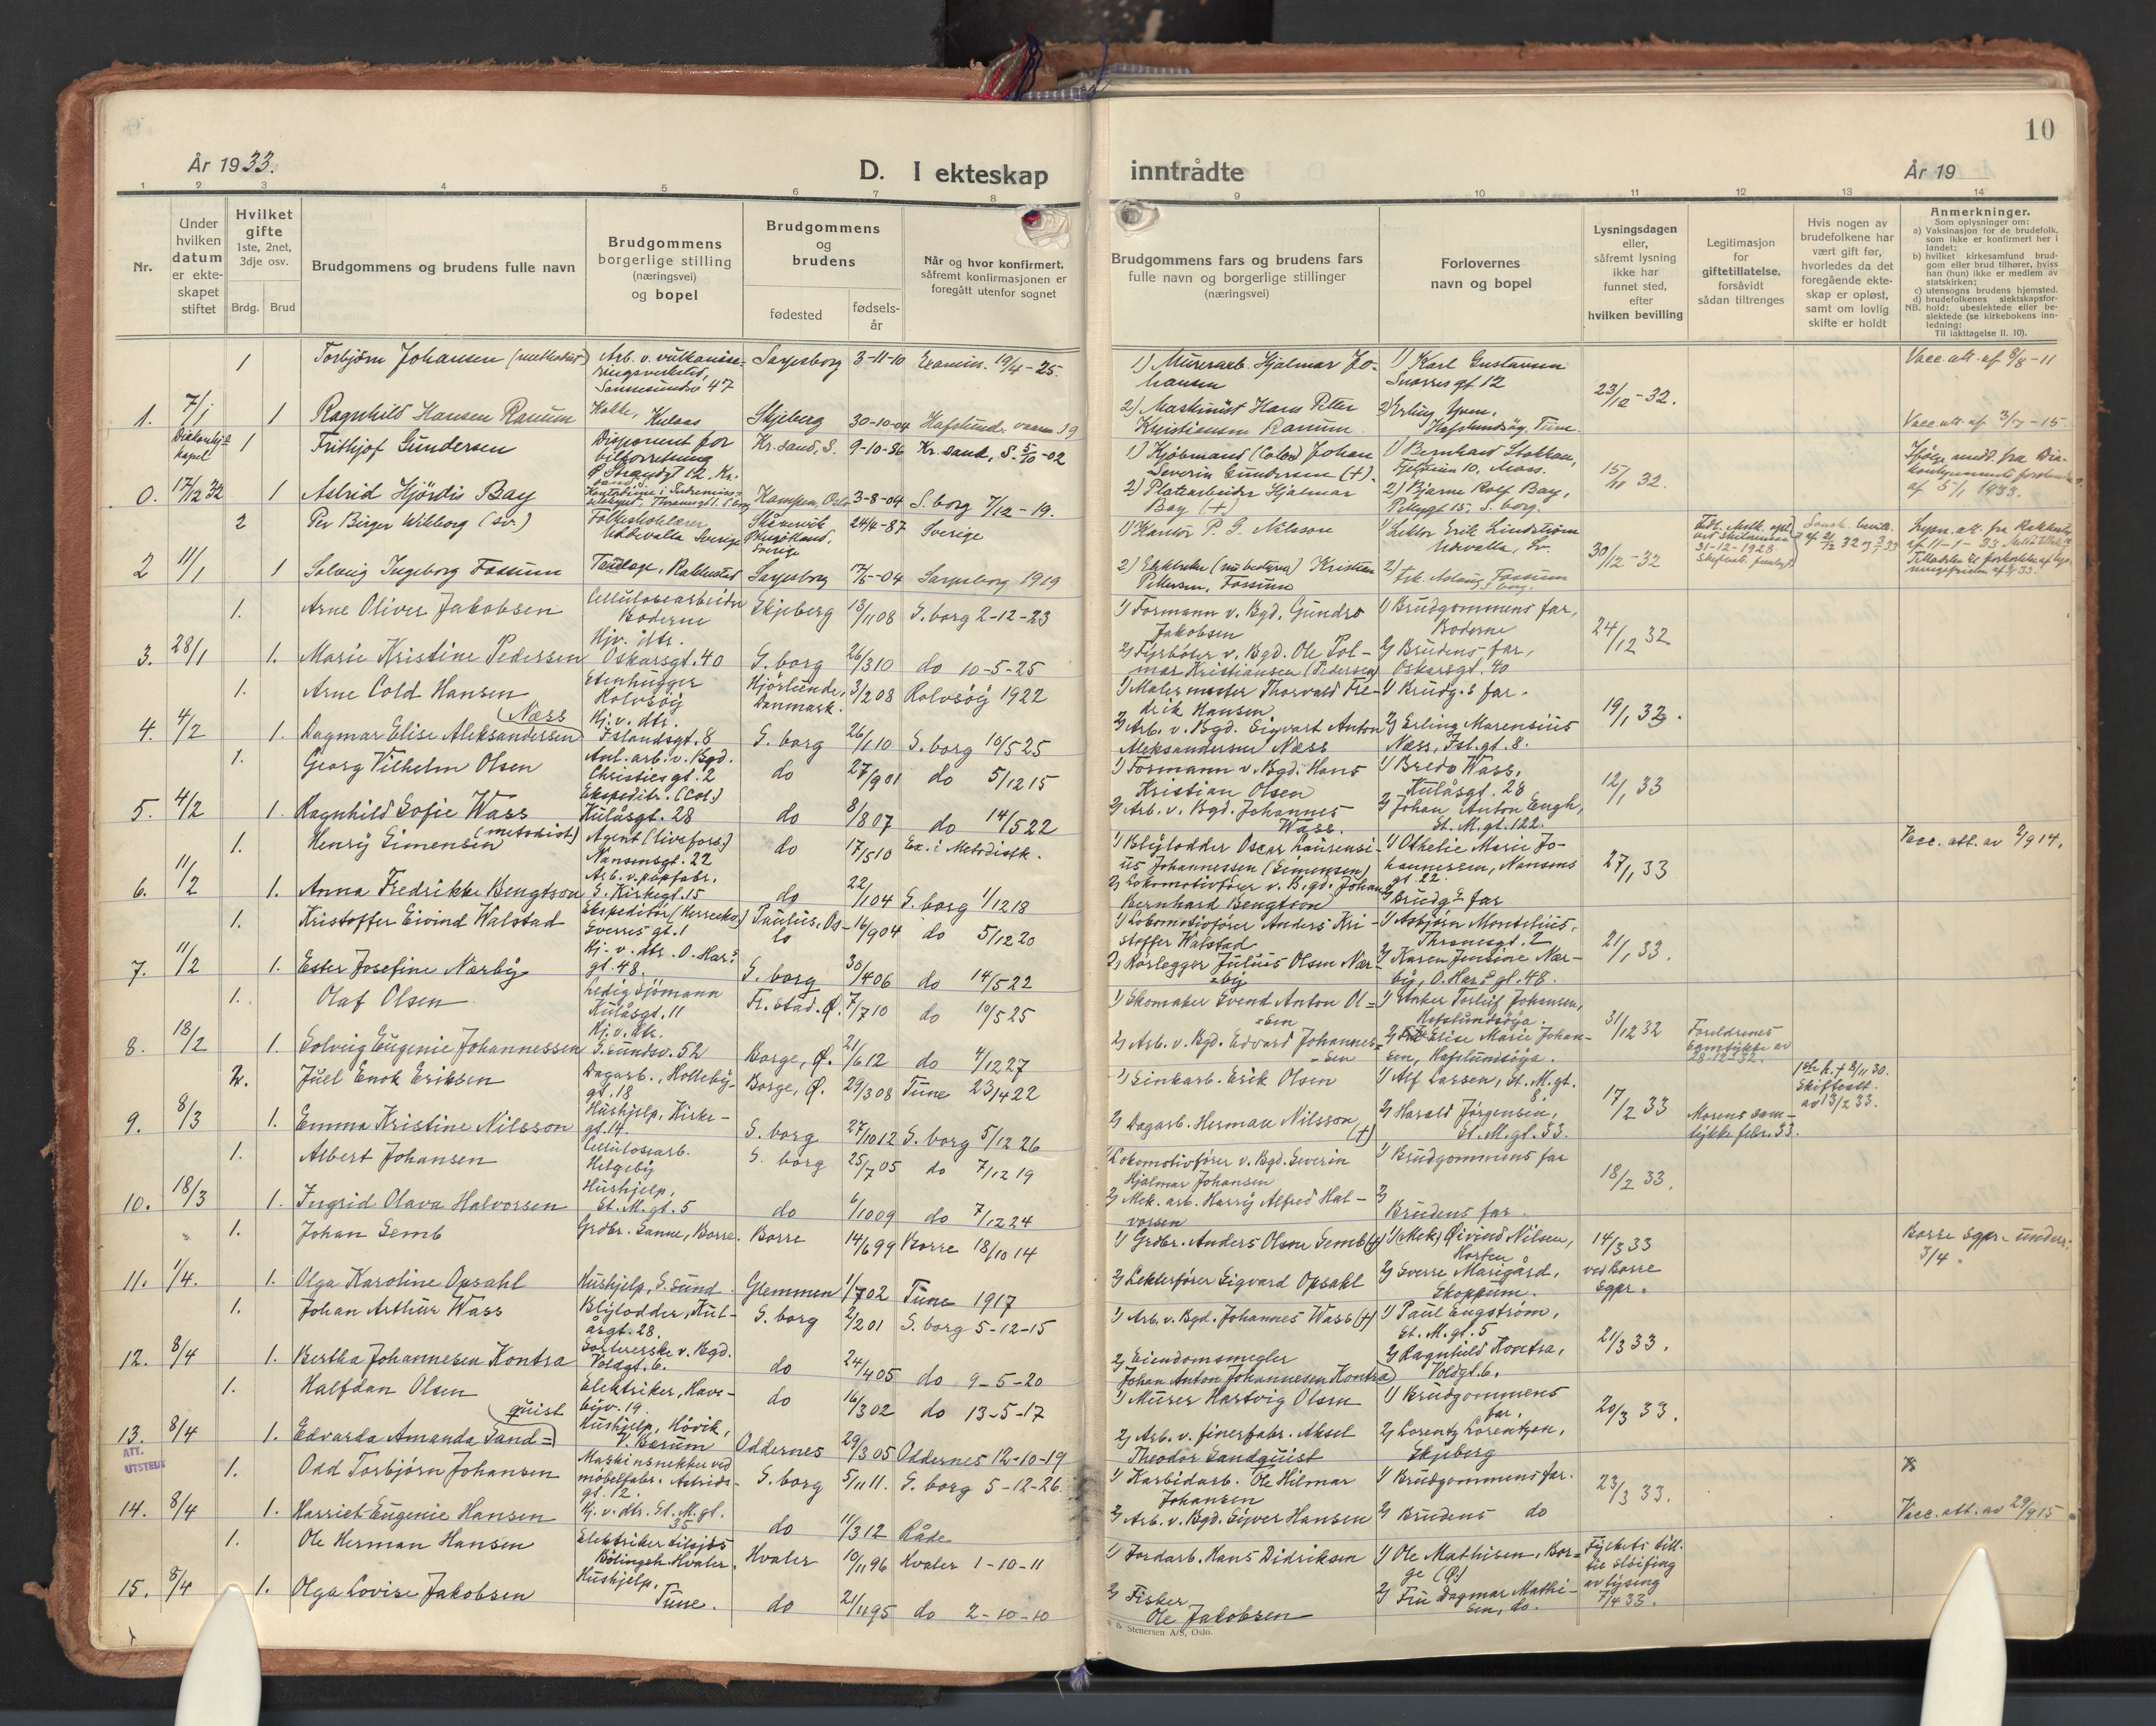 10
År 1933.
D. I ekteskap inntrådte
År 19
1 2 3 4 5 6 7 8 9 10 11 12 13 14
Nr.
Under hvilken datum er ekteskapet stiftet
Hvilket gifte 1ste, 2net, 3dje osv.
Brdg. Brud
Brudgommens og brudens fulle navn
Brudgommens borgerlige stilling (næringsvei) og bopel
Brudgommens og brudens
fødested
fødselsår
Når og hvor konfirmert, såfremt konfirmasjonen er foregått utenfor sognet
Brudgommens fars og brudens fars fulle navn og borgerlige stillinger (næringsvei)
Forlovernes navn og bopel
Lysningsdagen eller, såfremt lysning ikke har funnet sted, efter hvilken bevilling
Legitimasjon for giftetillatelse, forsåvidt sådan tiltrenges
Hvis nogen av brudefolkene har vært gift før, hvorledes da det foregående ekteskap er opløst, samt om lovlig skifte er holdt
Anmerkninger.
Som oplysninger om:
a) Vaksinasjon for de brudefolk, som ikke er konfirmert her i landet;
b) hvilket kirkesamfund brudgom eller brud tilhører, hviss han (hun) ikke er medlem av statskirken;
c) utensogns brudens hjemsted.
d) brudefolkenes slektskapsforhold: ubeslektede eller beslektede (se kirkebokens innledning:
NB.
Til iakttagelse II. 10).
1 Torbjørn Johansen (metodist) Arb. v. vulkaniseringsverksted, Sannesundsv 47 Sarpsborg 3-11-10 Examin. 19/4-25. 1) Murerarb. Hjalmar Johansen 1) Karl Gustavsen Snorresgt 12 23/12-32. Vacc. att. af 8/8-11
1. 7/1 1 Ragnhild Hansen Ranum Kokke, Kulaas Skjeberg 30-10-04 Hafslund 2) Maskinist Hans Petter Kristiansen Ranum 2) Erling Hafslundsøy, Tune. Vacc. att. af 3/7-15
Diakonhj.s kapel 1 Frithjof Gundersen Disponent for bilforretning Kr.sand, S. 9-10-86 Kr.sand, S. 5/10-02 Johan Severin Gundersen (+). 1) Bernhard Stokken, 10, Moss. 15/11 32.
0. 17/12 32 1 Astrid Hjördis Bay Kampen, Oslo 3-8-04 S. borg 7/12-19. 2) Platearbeider Hjalmar Bay (+) 2) Bjarne Rolf Bay, 15, S. borg. af 5/1 1933.
2 Per Birger Wiborg (sv.) Folkeskolelærer Uddevalla Sverige 24/4-87 Sverige 1) Kantor P. G. Nilsson 1) Lektor Erik Lindström Udevalla, Sv. 30/12-32 31-12-1928
2 11/1 1 Solveig Ingeborg Fossum Tandlæge, Rakkestad Sarpsborg 17/5-04 Sarpsborg 1919 Kristian Pettersen, Fossum 2) frk. Aslaug Fossum S. borg.
1. Arne Oliver Jakobsen Cellulosearbeider Boderne Skjeberg 13/11 08 S. borg 2-12-23 1) Formann v. Bgd. Gundro Jakobsen 1) Brudgommens far, Boderne 24/12 32
3. 28/1 1. Marie Kristine Pedersen Hjv. dtr. Oskarsgt. 40 S. borg 26/3 10 do 10-5-25 2) Fyrbøter v. Bgd. Ole Tolmar Kristiansen (Pedersen) 2) Brudens far, Oskarsgt. 40
1. Arne Cold Hansen Stenhugger Rolvsøy Hjørlunde, Danmark. 3/2 08 Rolvsøy 1922 1) Malermester Thorvald Fredrik Hansen 1) Brudg.s far. 19/1 33.
4. 4/2 1. Dagmar Elise Aleksandersen (Næss Hj. v. dtr. Islandsgt. 8 S. borg 26/1 10 S. borg 10/5 25 2) Arb. v. Bgd. Sigvart Anton Aleksandersen Næss 2) Erling Marensius Næss, Isl.gt. 8.
1. Georg Vilhelm Olsen Anl. arb. v. Bgd. Christiesgt. 2 do 27/9 01 do 5/12 15 1) Formann v. Bgd. Hans Kristian Olsen 1) Bredo Wass, Kulåsgt. 28 12/1 33
5. 4/2 1. Ragnhild Sofie Wass Ekspeditr. (Col.) Kulåsgt. 28 do 8/8 07 do 14/5 22 2) Arb. v. Bgd. Johannes Wass. 2) Johan Anton Engh, St. M. gt. 122.
1. Henry Simensen (metodist) Agent (livsfors.) Nansensgt. 22 do 17/5 10 Ex. i Metodistk. 1) Blylodder Oscar Laurensius Johannessen (Simensen) 1) Othelie Marie Johannessen, Nansensgt. 22. 27/1 33 Vacc. att. av 2/9 14.
6. 11/2 1. Anna Fredrikke Bengtson Arb. v. papfabr. S. Kirkegt. 15 do 22/1 04 S. borg 1/12 18 2) Lokomotivfører v. Bgd. Johan Bernhard Bengtson 2) Brudg.s far
1. Kristoffer Eivind Walstad Ekspeditør (Herreekv.) Sverresgt. 1 Paulus, Oslo 16/9 04 do 5/12 20 1) Lokomotivfører Anders Kristoffer Walstad 1) Asbjørn Montelius, Thranesgt. 2 21/1 33.
7. 11/2 1. Ester Josefine Nærby Hj. v. dtr. O. Har.s gt. 48. S. borg 30/4 06 do 14/5 22 2) Rørlegger Julius Olsen Nærby 2) Karen Jensine Nærby, O. Har.s gt. 48.
1. Olaf Olsen Ledig sjømann Kulåsgt. 11 Fr.stad. Ø. 7/7 10 do 10/5 25 1) Skomaker Svend Anton Olsen 1) Anker Torleif Johansen, Hafslundsøya. 31/12 32 Foreldrenes samtykke av 28-12-32.
8. 18/2 1. Solveig Eugenie Johannessen Hj. v. dtr. S.sundsv. 52 Borge, Ø. 21/6 12 do 4/12 27 2) Arb. v. Bgd. Edvard Johannessen 2) Elise Marie Johansen, Hafslundsøya.
2. Juel Enok Eriksen Dagarb., Hollebygt. 18 Borge, Ø. 29/3 08 Tune 23/4 22 1) Sinkarb. Erik Olsen 1) Alf Larsen, St. M. gt. 8. 17/2 33 Skifteatt. av 13/2 33.
9. 8/3 1. Emma Kristine Nilsson Hushjelp, Kirkegt. 14. S. borg 27/10 12 S. borg 5/12 26 2) Dagarb. Herman Nilsson (+) 2) Harald Jørgensen, St. M. gt. 33. Morens samtykke febr. 33.
1. Albert Johansen Cellulosearb. Helgeby S. borg 25/7 05 do 7/12 19 1) Lokomotivfører v. Bgd. Severin Hjalmar Johansen 1) Brudgommens far 18/2 33.
10. 18/3 1. Ingrid Olava Halvorsen Hushjelp, St. M. gt. 5 do 6/10 09 do 7/12 24 2) Mek. arb. Harry Alfred Halvorsen 2) Brudens far.
1. Johan Semb Grdbr. Sanne, Borre. Borre 14/6 99 Borre 18/10 14 1) Grdbr. Anders Olsen Semb (+) 1) (Mek) Øivind Nilsen, Horten 14/3 33 ved Borre sgpr. Borre sgpr. underr. 3/4.
11. 1/4. 1. Olga Karoline Opsahl Hushjelp, S.sund. Glemmen 1/7 02 Tune 1917 2) Lekterfører Sigvard Opsahl 2) Sverre Marigård, Skoppum.
1. Johan Arthur Wass Blylodder, Kulåsgt. 28. S. borg 2/2 01 S. borg 5-12-15 1) Arb. v. Bgd. Johannes Wass (+) 1) Paul Engstrøm, St. M. gt. 5 21/3 33.
12. 8/4 1. Bertha Johannesen Kontra Sortererske v. Bgd. Voldgt. 6. do 24/4 05 do 9-5-20 2) Eiendomsmegler Johan Anton Johannesen Kontra 2) Ragnhild Kontra, Voldgt. 6.
1. Halfdan Olsen Elektriker, Havebyv. 19. do 16/3 02 do 13-5-17 1) Murer Hartvig Olsen 1) Brudgommens far. 20/3 33.
13. 8/4 1. Edvarda Amanda Sandquist Hushjelp, Høvik, V. Bærum Oddernes 29/3 05 Oddernes 12-10-19 2) Arb. v. finerfabr. Aksel Theodor Sandquist 2) Lorentz Lorentzen, Skjeberg
ATT. UTSTEDT
1. Odd Torbjørn Johansen Maskinsnekker ved møbelfabr. Astridsgt. 12. S. borg 5/11 11. S. borg 5-12-26 1) Karbidarb. Ole Hilmar Johansen 1) Brudgommens far. 23/3 33.
14. 8/4 1. Harriet Eugenie Hansen Hj. v. dtr. St. M. gt. 35 do 11/3 12 Råde 2) Arb. v. Bgd. Sijver Hansen 2) Brudens do Vacc. att. av 29/9 15
1. Ole Herman Hansen Elektriker Hvaler. Hvaler 10/11 96 Hvaler 1-10-11 1) Jordarb. Hans Didriksen 1) Ole Mathisen, Borge (Ø.) Fylkets till. til sløifing av lysing 7/4 33.
15. 8/4 1. Olga Lovise Jakobsen Hushjelp, Tune. do 21/11 95 do 2-10-10 2) Fisker Ole Jakobsen 2) Fru Dagmar Mathisen, do.
Stenersen A/S, Oslo.